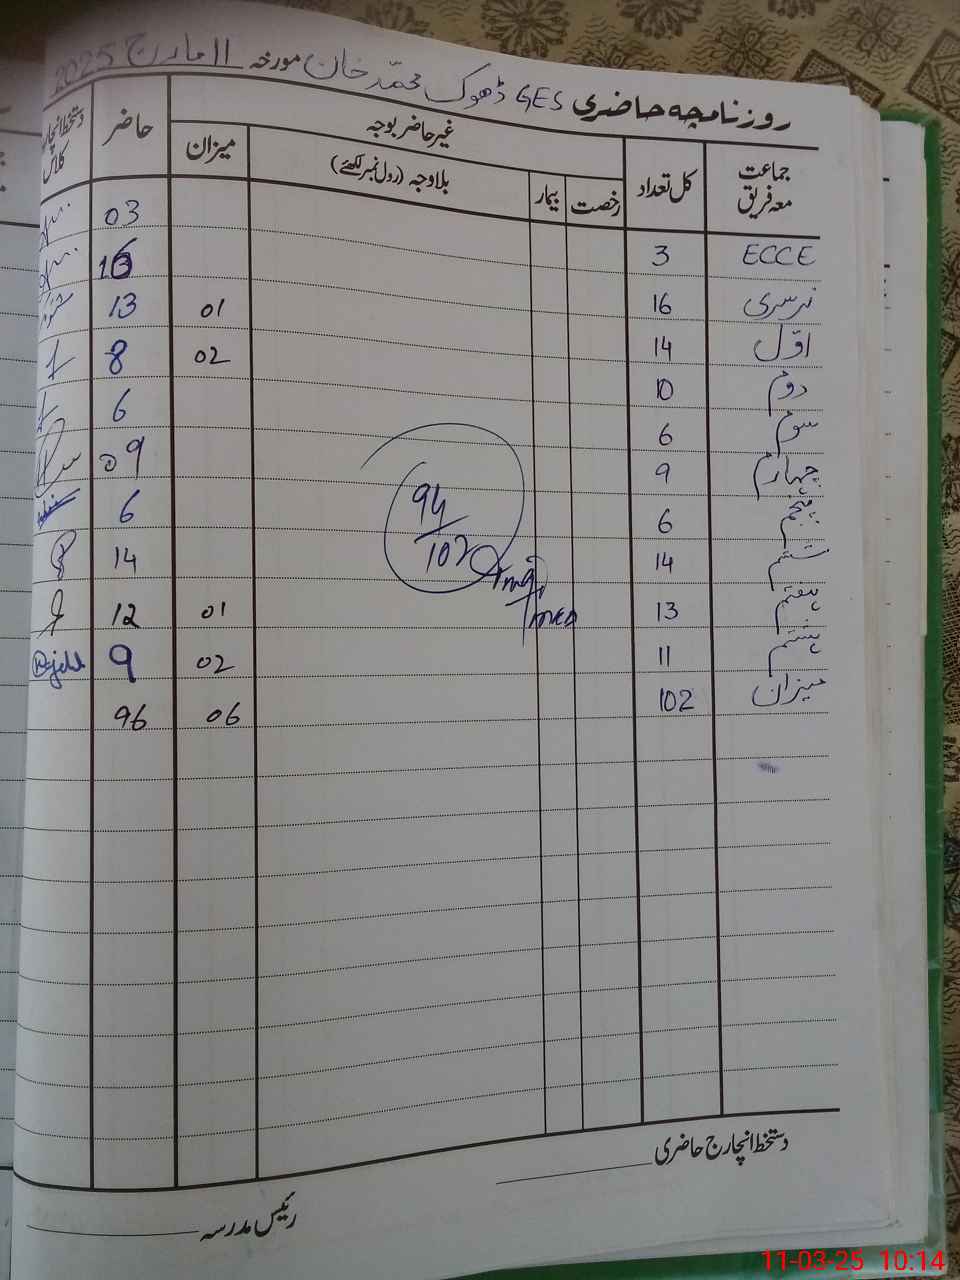 روزنامچہ حاضری GES ڈھوک محمد خان مورخہ 11 مارچ 2025
جماعت معہ فریق کل تعداد غیر حاضر بوجہ حاضر دستخط انچارج کلاس
رخصت بیمار بلاوجہ (رول نمبر لکھئے) میزان
ECCE 3 03
نرسری 16 16
اوّل 14 01 13
دوم 10 02 8
سوم 6 6
چہارم 9 09
پنجم 6 6
ششم 14 14
ہفتم 13 01 12
ہشتم 11 02 9
میزان 102 06 96
94/102
دستخط انچارج حاضری
رئیس مدرسہ
11-03-25 10:14